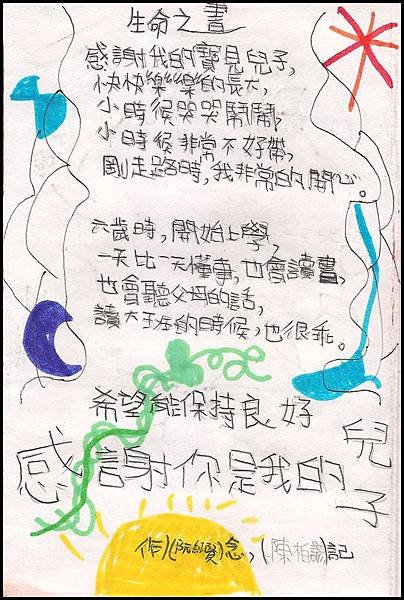 生命之書
感謝我的寶貝兒子，
快快樂樂的長大，
小時候哭哭鬧鬧，
小時候非常不好帶，
剛走路時，我非常的開心。
六歲時，開始上學，
一天比一天懂事，也會讀書，
也會聽父母的話，
讀大班的時候，也很乖。
希望能保持良好
感謝你是我的兒子
作)(阮賢)念，(陳柏)記